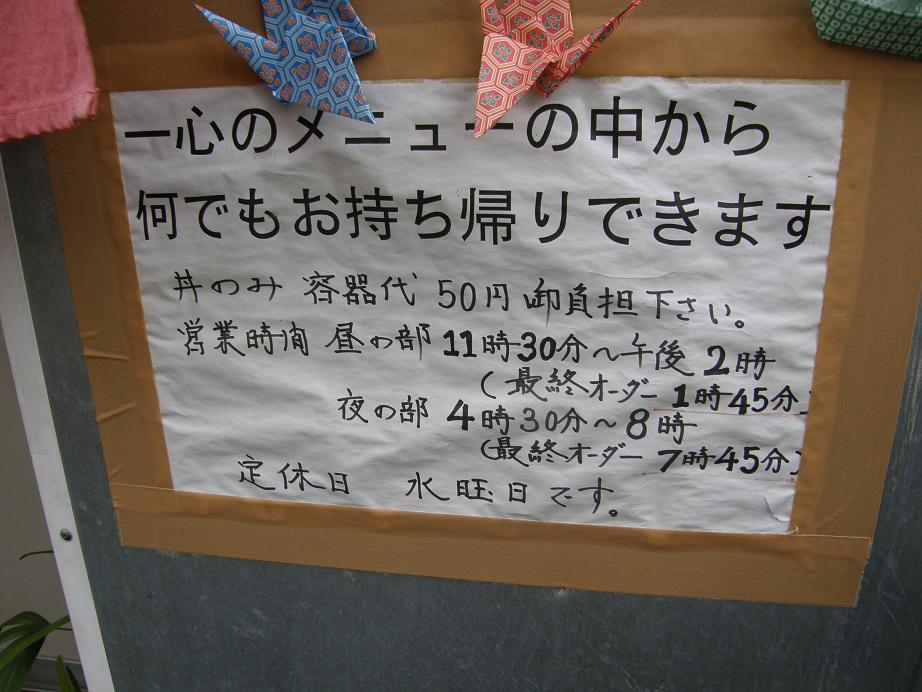 一心のメニューの中から
何でもお持ち帰りできます
丼のみ 容器代 50円 御負担下さい。
営業時間 昼の部 11時30分～午後 2時
(最終オーダー 1時45分)
夜の部 4時30分～8時
(最終オーダー 7時45分)
定休日 水曜日です。